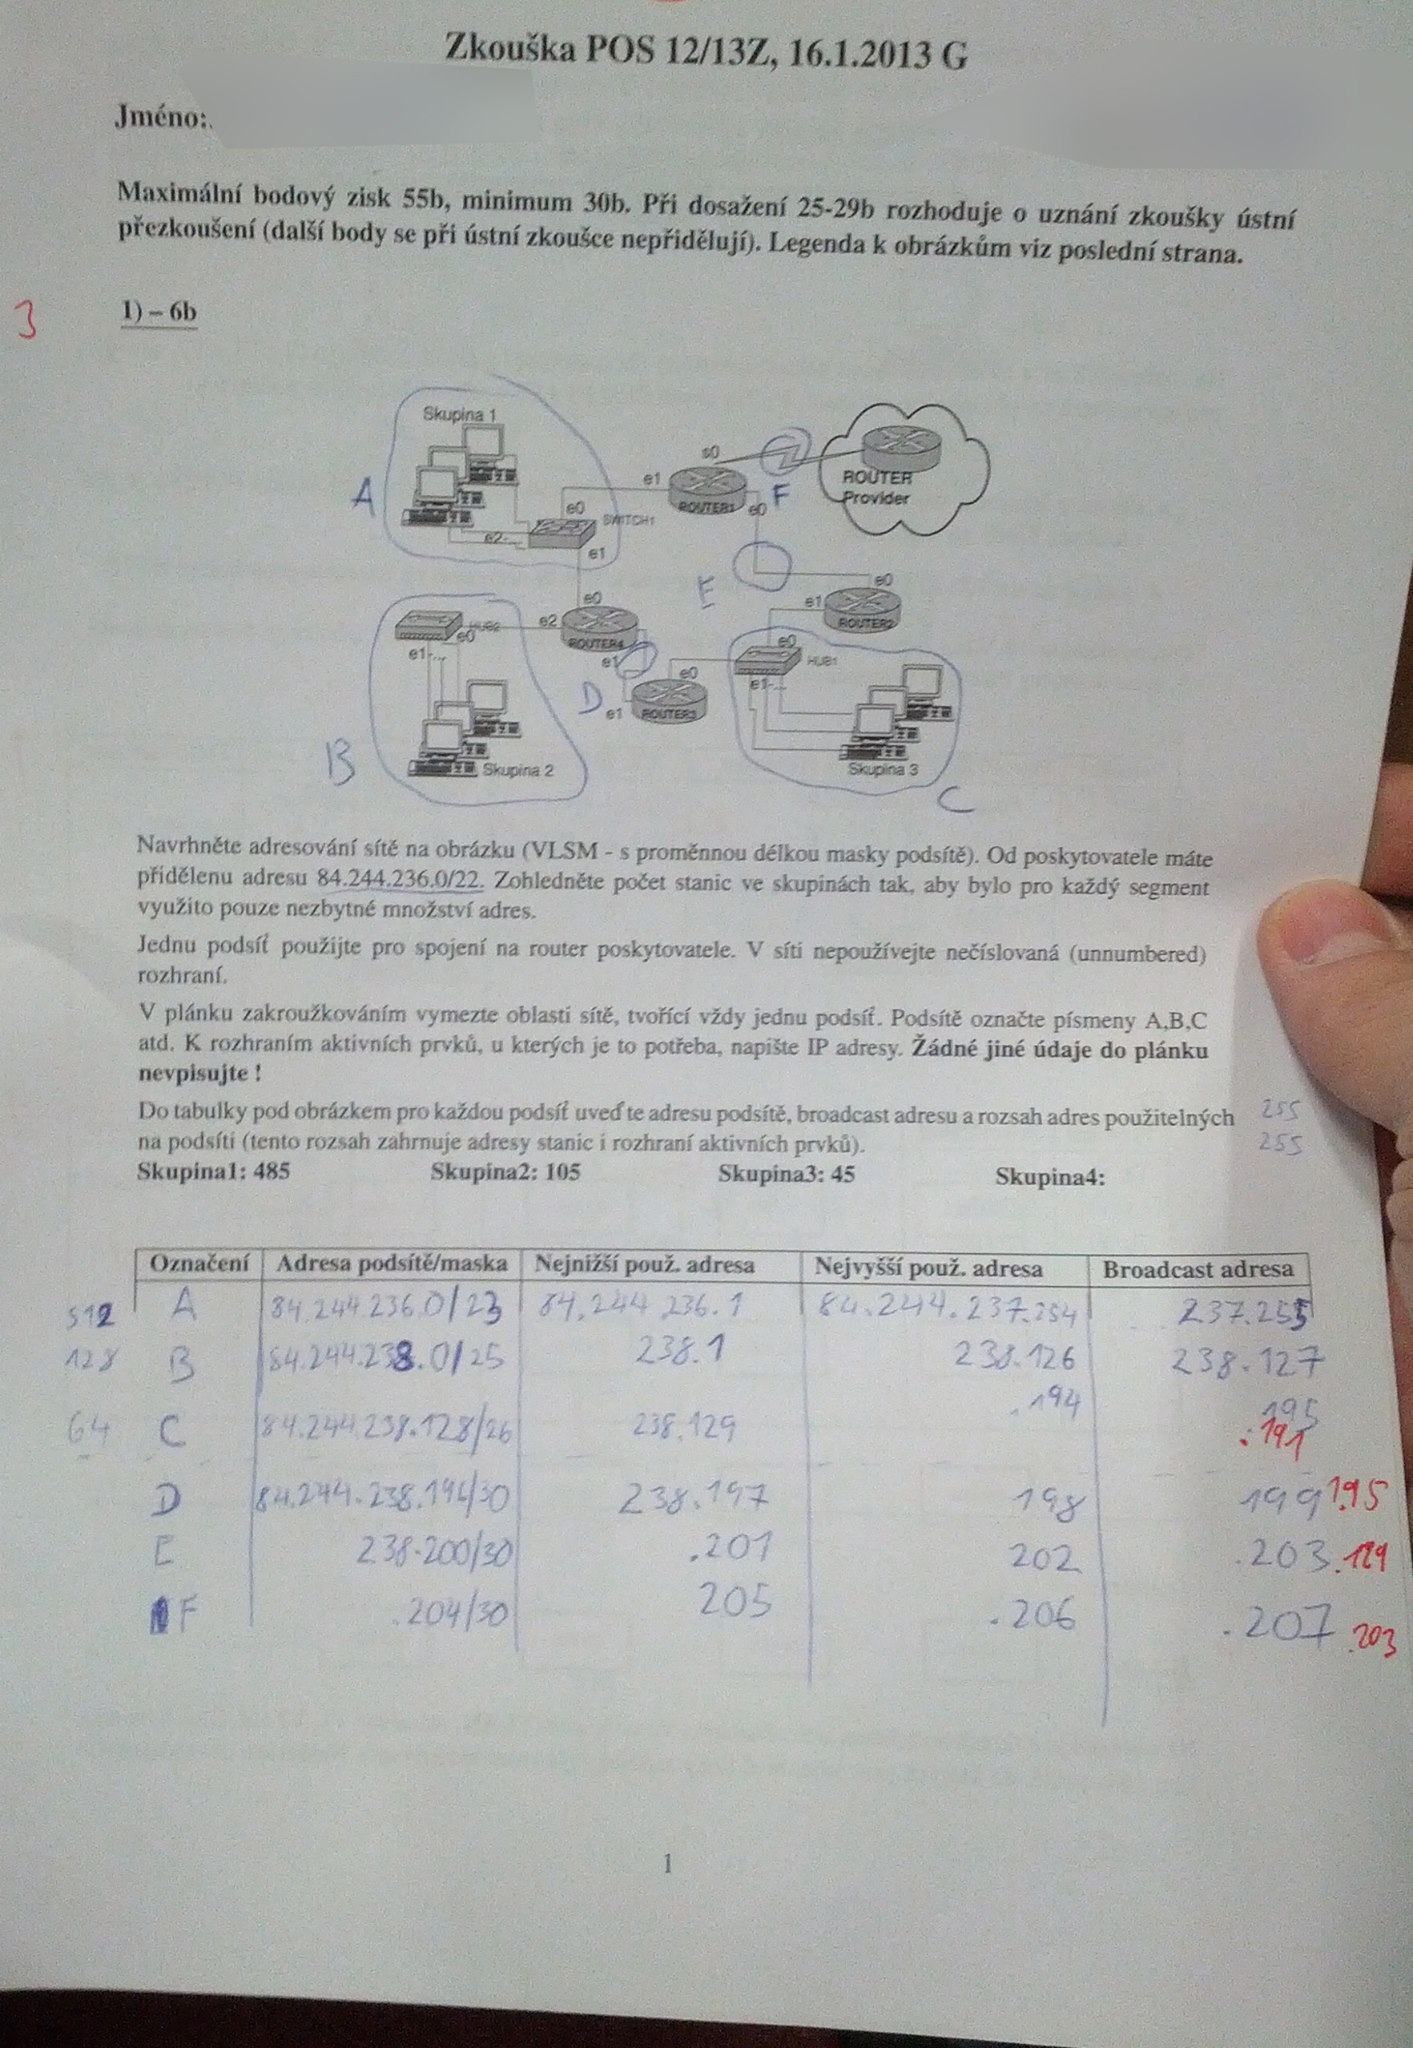 Zkouška POS 12/13Z, 16.1.2013 G
Jméno:
Maximální bodový zisk 55b, minimum 30b. Při dosažení 25-29b rozhoduje o uznání zkoušky ústní
přezkoušení (další body se při ústní zkoušce nepřidělují). Legenda k obrázkům viz poslední strana.
3
1) – 6b
Skupina 1
A
e0
SWITCH1
e2-...
e1
s0
e1
ROUTER1
e0
F
ROUTER
Provider
E
e0
e1
ROUTER2
HUB2
e0
e1-...
e2
e0
ROUTER4
e1
D
e0
e1
ROUTER3
e0
HUB1
e1-...
B
Skupina 2
Skupina 3
C
Navrhněte adresování sítě na obrázku (VLSM - s proměnnou délkou masky podsítě). Od poskytovatele máte
přidělenu adresu 84.244.236.0/22. Zohledněte počet stanic ve skupinách tak, aby bylo pro každý segment
využito pouze nezbytné množství adres.
Jednu podsíť použijte pro spojení na router poskytovatele. V síti nepoužívejte nečíslovaná (unnumbered)
rozhraní.
V plánku zakroužkováním vymezte oblasti sítě, tvořící vždy jednu podsíť. Podsítě označte písmeny A,B,C
atd. K rozhraním aktivních prvků, u kterých je to potřeba, napište IP adresy. Žádné jiné údaje do plánku
nevpisujte !
Do tabulky pod obrázkem pro každou podsíť uveďte adresu podsítě, broadcast adresu a rozsah adres použitelných
na podsíti (tento rozsah zahrnuje adresy stanic i rozhraní aktivních prvků).
255
255
Skupina1: 485 Skupina2: 105 Skupina3: 45 Skupina4:
Označení Adresa podsítě/maska Nejnižší použ. adresa Nejvyšší použ. adresa Broadcast adresa
512 A 84.244.236.0/23 84.244.236.1 84.244.237.254 237.255
128 B 84.244.238.0/25 238.1 238.126 238.127
64 C 84.244.238.128/26 238.129 .194 195
.191
D 84.244.238.196/30 238.197 198 199 195
E 238.200/30 .201 202 .203 .199
F .204/30 205 .206 .207 .203
1